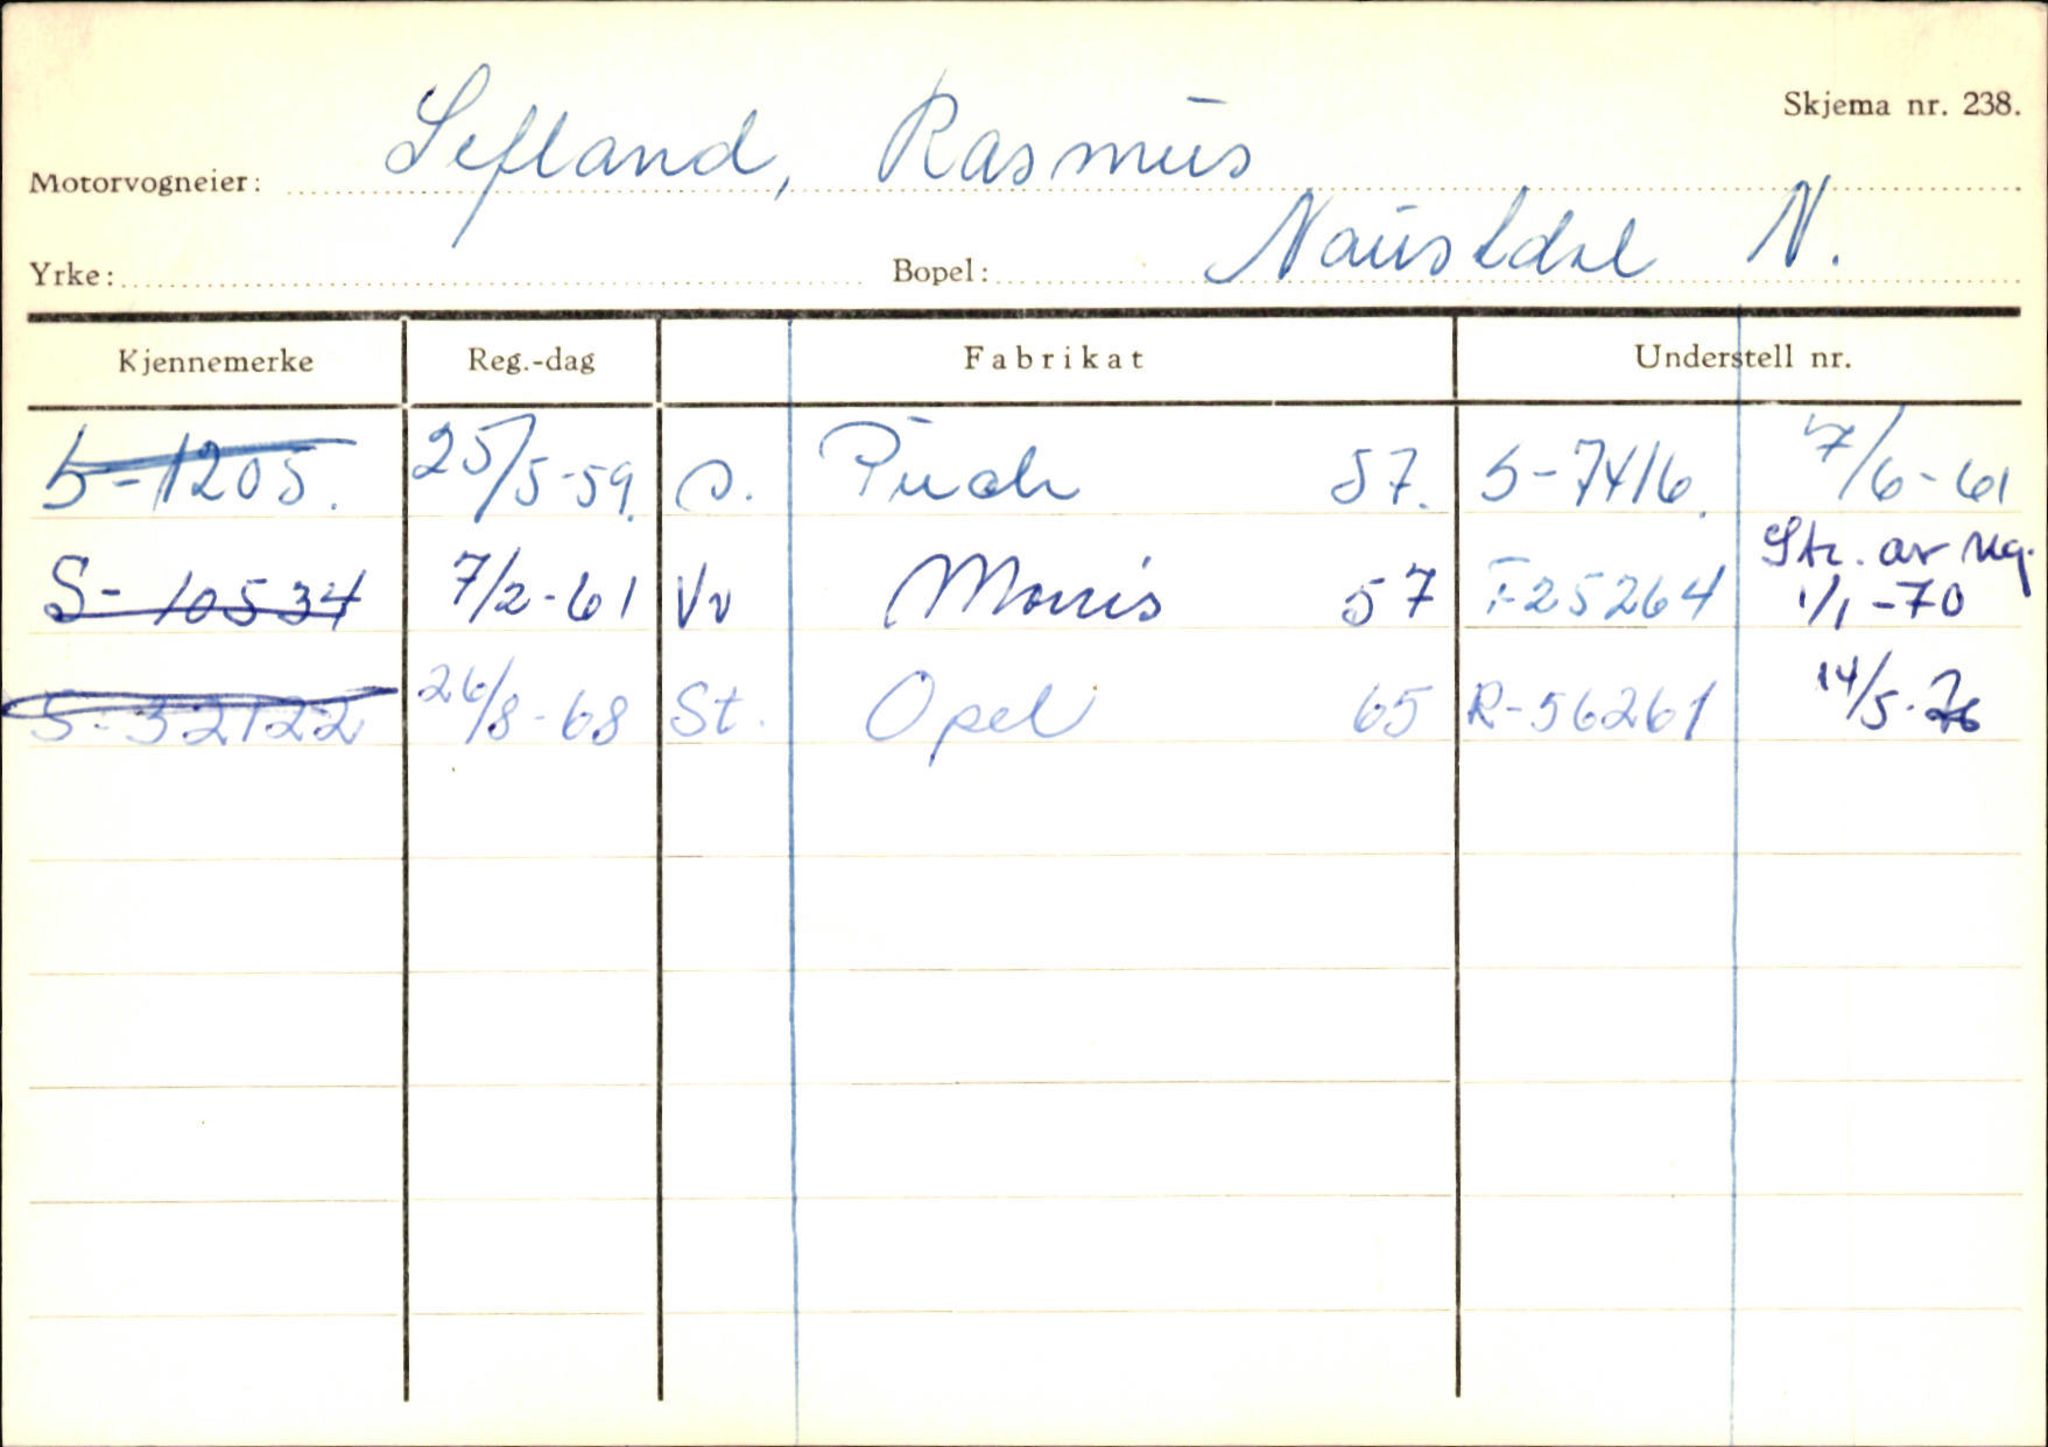 Skjema nr. 238.
Motorvogneier: Sefland, Rasmus
Yrke: Bopel: Naustdal N.
Kjennemerke Reg.-dag Fabrikat Understell nr.
S-1205. 25/5-59. Puch 57. S-7416. 7/6-61
S-10534 7/2-61 Vv Morris 57 F25264 Str. av reg. 1/1-70
S-32122 26/8-68 St. Opel 65 R-56261 14/5-76